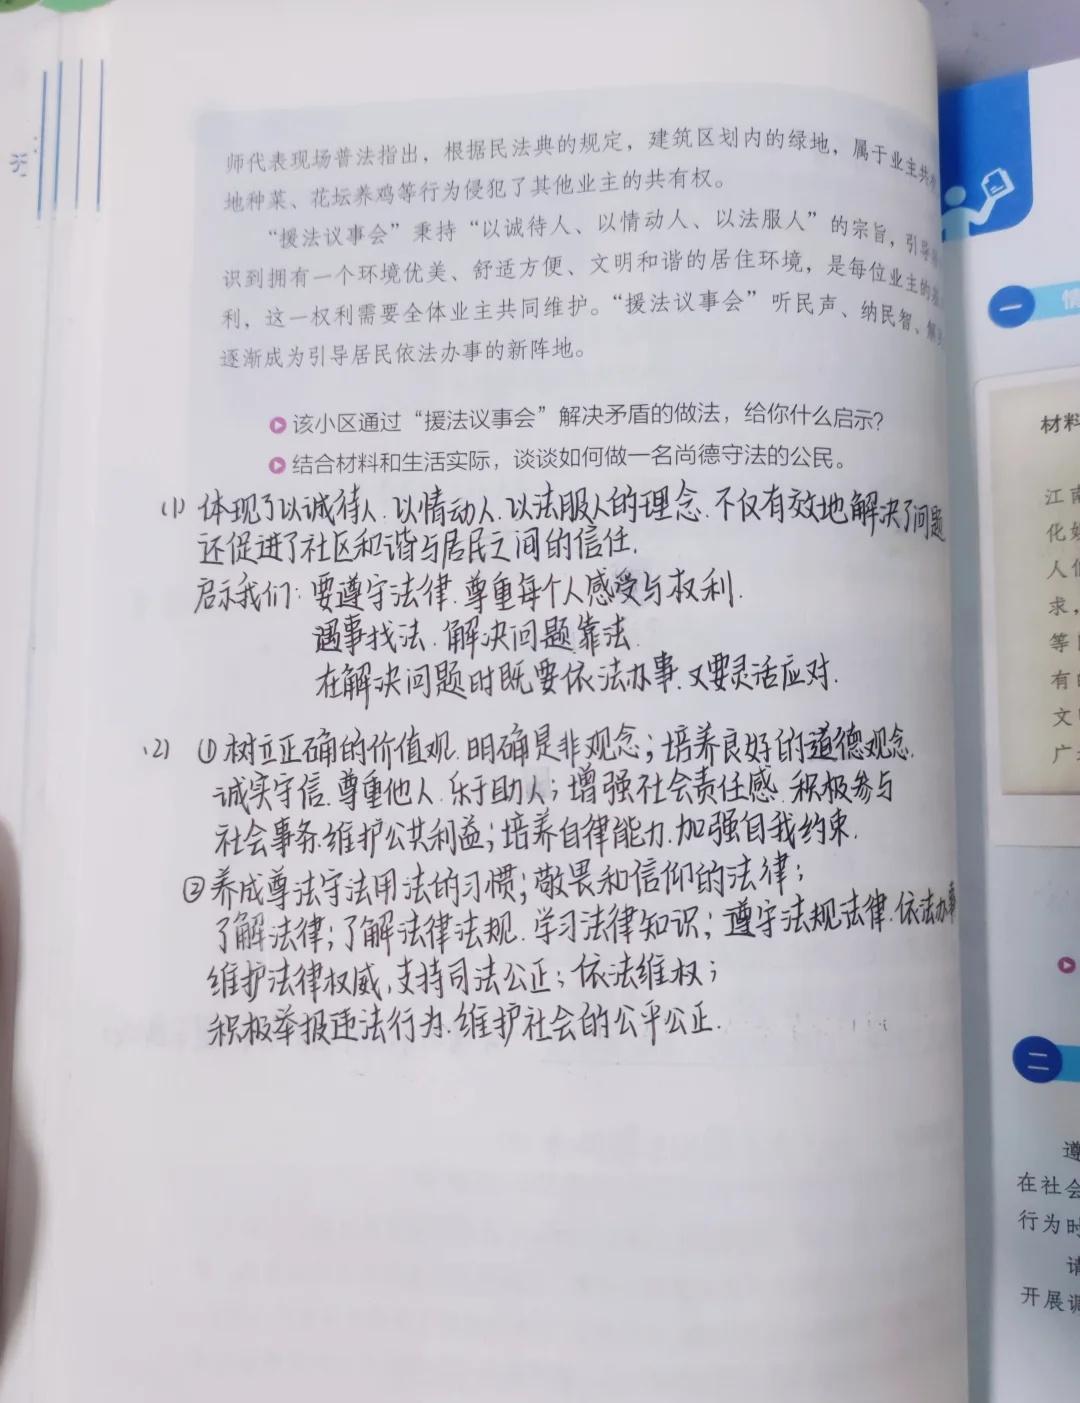 师代表现场普法指出，根据民法典的规定，建筑区划内的绿地，属于业主共
地种菜、花坛养鸡等行为侵犯了其他业主的共有权。
“援法议事会”秉持“以诚待人、以情动人、以法服人”的宗旨，引导
识到拥有一个环境优美、舒适方便、文明和谐的居住环境，是每位业主的
利，这一权利需要全体业主共同维护。“援法议事会”听民声、纳民智、解
逐渐成为引导居民依法办事的新阵地。
该小区通过“援法议事会”解决矛盾的做法，给你什么启示？
结合材料和生活实际，谈谈如何做一名尚德守法的公民。
(1) 体现了以诚待人.以情动人.以法服人的理念.不仅有效地解决了问题
还促进了社区和谐与居民之间的信任.
启示我们:要遵守法律.尊重每个人感受与权利.
遇事找法.解决问题靠法.
在解决问题时既要依法办事.又要灵活应对.
(2) ①树立正确的价值观.明确是非观念;培养良好的道德观念.
诚实守信.尊重他人.乐于助人;增强社会责任感.积极参与
社会事务.维护公共利益;培养自律能力.加强自我约束.
②养成尊法守法用法的习惯;敬畏和信仰的法律;
了解法律;了解法律法规.学习法律知识;遵守法规法律.依法办事
维护法律权威,支持司法公正;依法维权;
积极举报违法行为.维护社会的公平公正.
一
情
材料
江南
化
人们
求，
等
有
文
广
二
遵
在社会
行为时
请
开展调